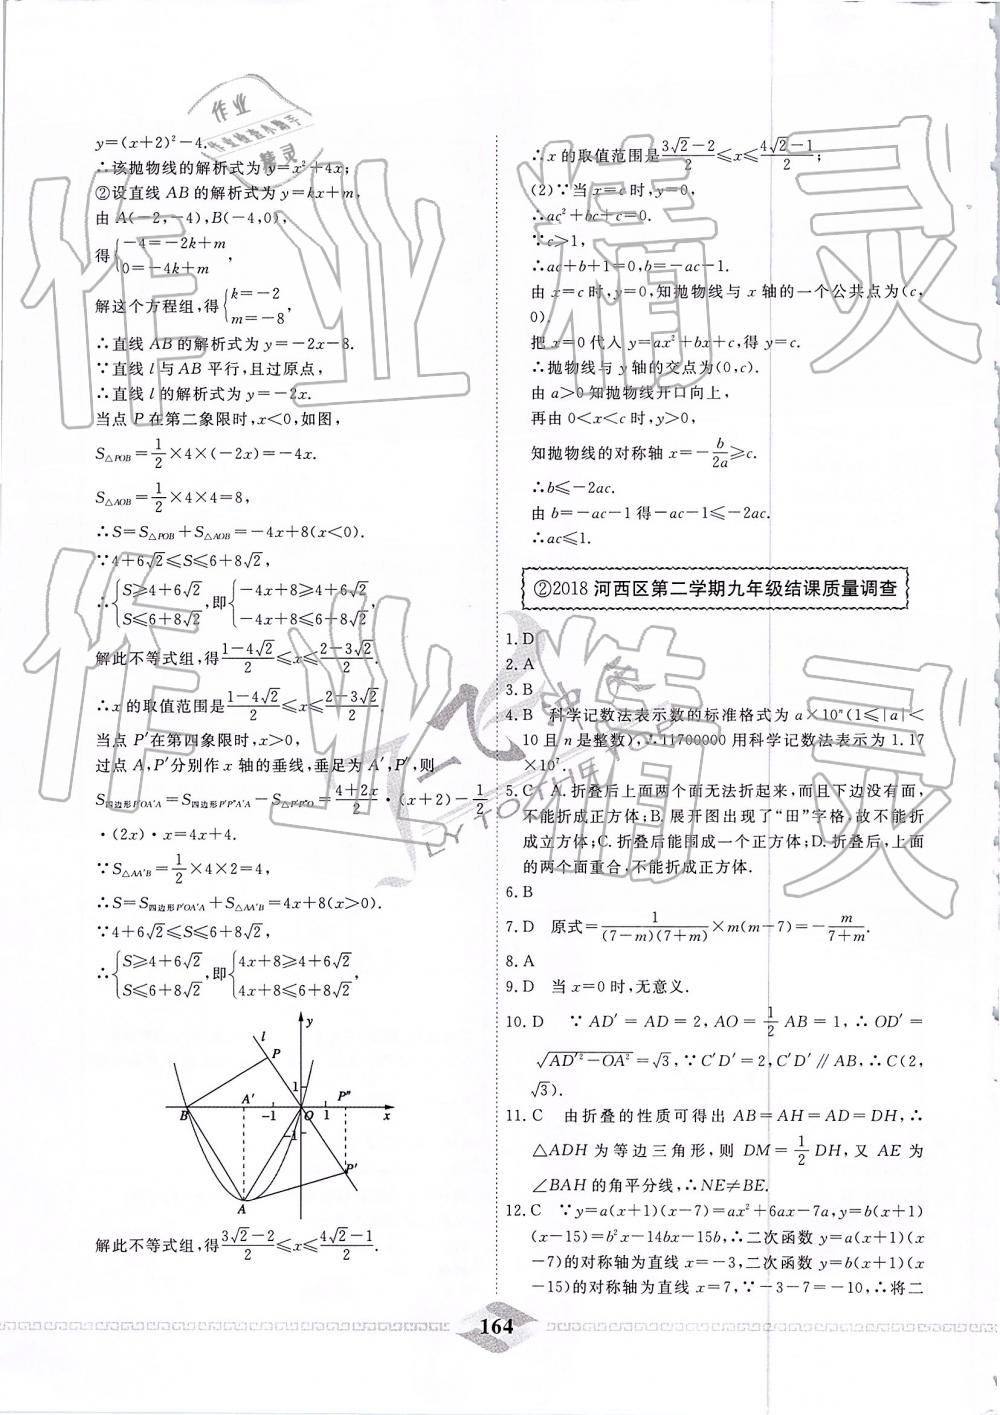 y=(x+2)²-4.
∴该抛物线的解析式为 y=x²+4x;
②设直线 AB 的解析式为 y=kx+m,
由 A(-2,-4),B(-4,0),
得{-4=-2k+m
0=-4k+m,
解这个方程组,得{k=-2
m=-8,
∴直线 AB 的解析式为 y=-2x-8.
∵直线 l 与 AB 平行,且过原点,
∴直线 l 的解析式为 y=-2x.
当点 P 在第二象限时,x<0,如图,
S△POB=1/2×4×(-2x)=-4x.
S△AOB=1/2×4×4=8,
∴S=S△POB+S△AOB=-4x+8(x<0).
∵4+6√2≤S≤6+8√2,
∴{S≥4+6√2
S≤6+8√2,即{-4x+8≥4+6√2
-4x+8≤6+8√2
解此不等式组,得(1-4√2)/2≤x≤(2-3√2)/2.
∴x 的取值范围是(1-4√2)/2≤x≤(2-3√2)/2.
当点 P′在第四象限时,x>0,
过点 A,P′分别作 x 轴的垂线,垂足为 A′,P″,则
S四边形P′OA′A=S四边形P′P″A′A-S△P′P″O=(4+2x)/2·(x+2)-1/2
·(2x)·x=4x+4.
∵S△AA′B=1/2×4×2=4,
∴S=S四边形P′OA′A+S△AA′B=4x+8(x>0).
∵4+6√2≤S≤6+8√2,
∴{S≥4+6√2
S≤6+8√2,即{4x+8≥4+6√2
4x+8≤6+8√2,
y
l
P
1
A′
P″
B
-1
O
1
x
-1
P′
A
解此不等式组,得(3√2-2)/2≤x≤(4√2-1)/2.
∴x 的取值范围是(3√2-2)/2≤x≤(4√2-1)/2;
(2)∵当 x=c 时,y=0,
∴ac²+bc+c=0.
∵c>1,
∴ac+b+1=0,b=-ac-1.
由 x=c 时,y=0,知抛物线与 x 轴的一个公共点为(c,
0).
把 x=0 代入 y=ax²+bx+c,得 y=c.
∴抛物线与 y 轴的交点为(0,c).
由 a>0 知抛物线开口向上,
再由 0<x<c 时,y>0,
知抛物线的对称轴 x=-b/2a≥c.
∴b≤-2ac.
由 b=-ac-1 得-ac-1≤-2ac.
∴ac≤1.
②2018 河西区第二学期九年级结课质量调查
1. D
2. A
3. B
4. B 科学记数法表示数的标准格式为 a×10ⁿ(1≤|a|<
10 且 n 是整数),∴11700000 用科学记数法表示为 1.17
×10⁷.
5. C A.折叠后上面两个面无法折起来,而且下边没有面,
不能折成正方体;B.展开图出现了“田”字格,故不能折
成立方体;C.折叠后能围成一个正方体;D.折叠后,上面
的两个面重合,不能折成正方体.
6. B
7. D 原式=1/((7-m)(7+m))×m(m-7)=-m/(7+m).
8. A
9. D 当 x=0 时,无意义.
10. D ∵AD′=AD=2,AO=1/2AB=1,∴OD′=
√(AD′²-OA²)=√3,∵C′D′=2,C′D′∥AB,∴C(2,
√3).
11. C 由折叠的性质可得出 AB=AH=AD=DH,∴
△ADH 为等边三角形,则 DM=1/2DH,又 AE 为
∠BAH 的角平分线,∴NE≠BE.
12. C ∵y=a(x+1)(x-7)=ax²+6ax-7a,y=b(x+1)
(x-15)=b²x-14bx-15b,∴二次函数 y=a(x+1)(x
-7)的对称轴为直线 x=-3,二次函数 y=b(x+1)(x
-15)的对称轴为直线 x=7,∵-3-7=-10,∴将二
164
作业精灵
作业精灵
作业
作业检查小助手
精灵